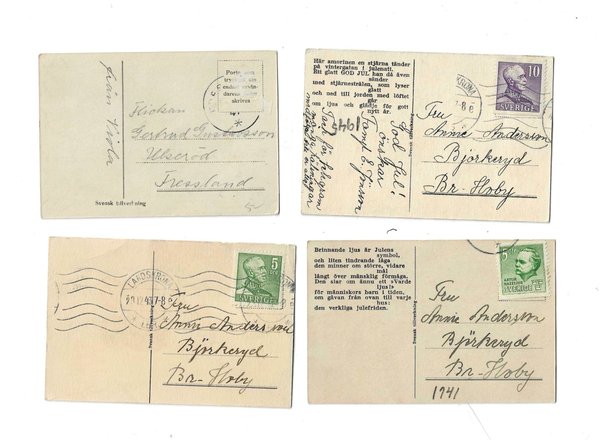 från Viola
Porto som
trycksak
Fröcken
Gertrud Gustavsson
Ulseröd
Fressland
Svensk tillverkning
Här amorinen en stjärna tänder
på vintergatan i julenatt.
Ett glatt GOD JUL han då även
sänder
med stjärnestrålen, som lyser
glatt
och ned till jorden med löftet
går
om ljus och glädje för gott
nytt år.
1945
God Jul!
önskar
Tack för
Svensk tillverkning
10
SVERIGE
7-8
Fru
Annie Andersson
Björkeryd
Br-Hoby
LANDSKRONA
7-8
5
SVERIGE
Svensk tillverkning
Fru
Anna Andersson
Björkeryd
Br-Hoby
Brinnande ljus är Julens
symbol,
och liten tindrande låga
den minner om större, vidare
mål
långt över mänsklig förmåga.
Den slår om ännu ett »Varde
ljus!»
för människors barn i tiden,
om gåvan från ovan till varje
hus:
den verkliga julefriden.
Svensk tillverkning
5
SVERIGE
Fru
Annie Andersson
Björkeryd
Br-Hoby
1941